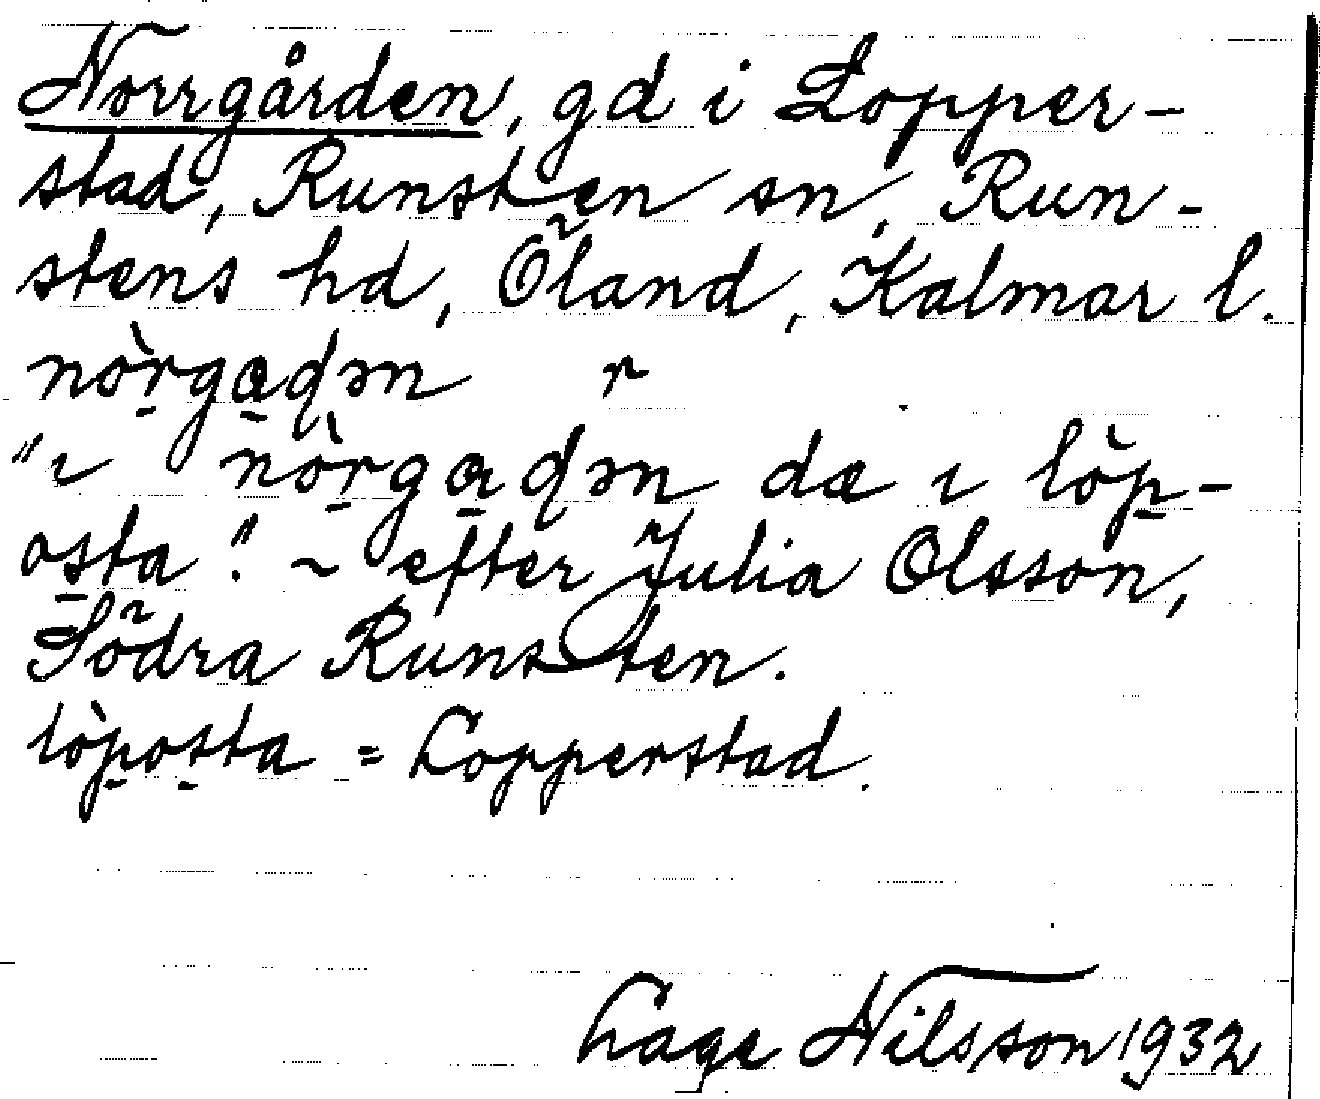 Norrgården, gd i Lopper-
stad, Runsten sn, Run-
stens hd, Öland, Kalmar l.
nòrgaɖən r
"ı nòrgaɖən dæ ı lòp-
osta". ~ efter Julia Olsson,
Södra Runsten.
lòposta = Lopperstad.
Lage Nilsson 1932